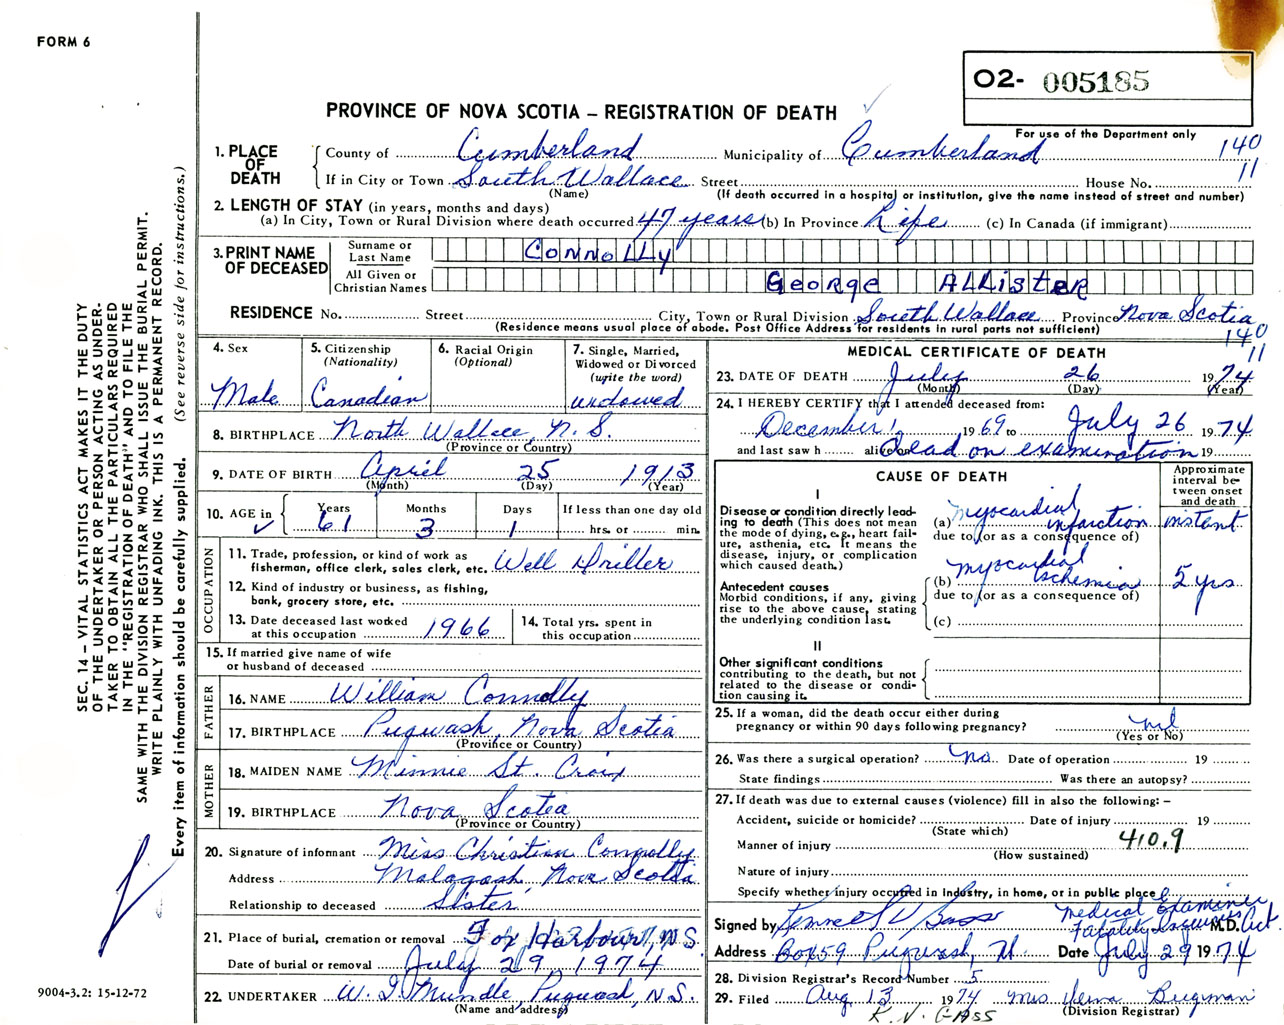 FORM 6
O2- 005185
For use of the Department only
PROVINCE OF NOVA SCOTIA – REGISTRATION OF DEATH
1. PLACE OF DEATH
County of Cumberland Municipality of Cumberland 140
If in City or Town South Wallace Street House No. 11
(Name) (If death occurred in a hospital or institution, give the name instead of street and number)
2. LENGTH OF STAY (in years, months and days)
(a) In City, Town or Rural Division where death occurred 47 years (b) In Province Life (c) In Canada (if immigrant)
3. PRINT NAME OF DECEASED
Surname or Last Name CONNOLLY
All Given or Christian Names George ALLister
RESIDENCE No. Street City, Town or Rural Division South Wallace Province Nova Scotia
(Residence means usual place of abode. Post Office Address for residents in rural parts not sufficient)
140
11
4. Sex
Male
5. Citizenship
(Nationality)
Canadian
6. Racial Origin
(Optional)
7. Single, Married,
Widowed or Divorced
(write the word)
widowed
8. BIRTHPLACE North Wallace, N.S.
(Province or Country)
9. DATE OF BIRTH April 25 1913
(Month) (Day) (Year)
10. AGE in Years Months Days If less than one day old
61 3 1 hrs. or min.
OCCUPATION
11. Trade, profession, or kind of work as
fisherman, office clerk, sales clerk, etc. Well Driller
12. Kind of industry or business, as fishing,
bank, grocery store, etc.
13. Date deceased last worked
at this occupation 1966
14. Total yrs. spent in
this occupation
15. If married give name of wife
or husband of deceased
FATHER
16. NAME William Connolly
17. BIRTHPLACE Pugwash, Nova Scotia
(Province or Country)
MOTHER
18. MAIDEN NAME Minnie St. Croix
19. BIRTHPLACE Nova Scotia
(Province or Country)
20. Signature of informant Miss Christian Connolly
Address Malagash Nova Scotia
Relationship to deceased Sister
21. Place of burial, cremation or removal Fox Harbour, N.S.
Date of burial or removal July 29, 1974
22. UNDERTAKER W. I. Mundle, Pugwash, N.S.
(Name and address)
MEDICAL CERTIFICATE OF DEATH
23. DATE OF DEATH July 26 1974
(Month) (Day) (Year)
24. I HEREBY CERTIFY that I attended deceased from:
December 1, 1969 to July 26 1974
and last saw h alive on dead on examination 19
CAUSE OF DEATH
Approximate interval between onset and death
I
Disease or condition directly leading to death (This does not mean the mode of dying, e.g., heart failure, asthenia, etc. It means the disease, injury, or complication which caused death.)
(a) myocardial infarction instant
due to (or as a consequence of)
Antecedent causes
Morbid conditions, if any, giving rise to the above cause, stating the underlying condition last.
(b) myocardial ischemia 5 yrs
due to (or as a consequence of)
(c)
II
Other significant conditions
contributing to the death, but not
related to the disease or condition causing it.
25. If a woman, did the death occur either during
pregnancy or within 90 days following pregnancy? nil
(Yes or No)
26. Was there a surgical operation? No Date of operation 19
State findings Was there an autopsy?
27. If death was due to external causes (violence) fill in also the following: –
Accident, suicide or homicide? Date of injury 19
(State which)
Manner of injury 410.9
(How sustained)
Nature of injury
Specify whether injury occurred in Industry, in home, or in public place
Signed by Medical Examiner M.D.
Fatality Inquiries Act
Address Box 59 Pugwash, Date July 29 1974
28. Division Registrar's Record Number 5
29. Filed Aug 13 1974 Mrs
(Division Registrar)
SEC. 14 – VITAL STATISTICS ACT MAKES IT THE DUTY
OF THE UNDERTAKER OR PERSON ACTING AS UNDER-
TAKER TO OBTAIN ALL THE PARTICULARS REQUIRED
IN THE "REGISTRATION OF DEATH" AND TO FILE THE
SAME WITH THE DIVISION REGISTRAR WHO SHALL ISSUE THE BURIAL PERMIT.
WRITE PLAINLY WITH UNFADING INK. THIS IS A PERMANENT RECORD.
Every item of information should be carefully supplied. (See reverse side for instructions.)
9004-3.2: 15-12-72